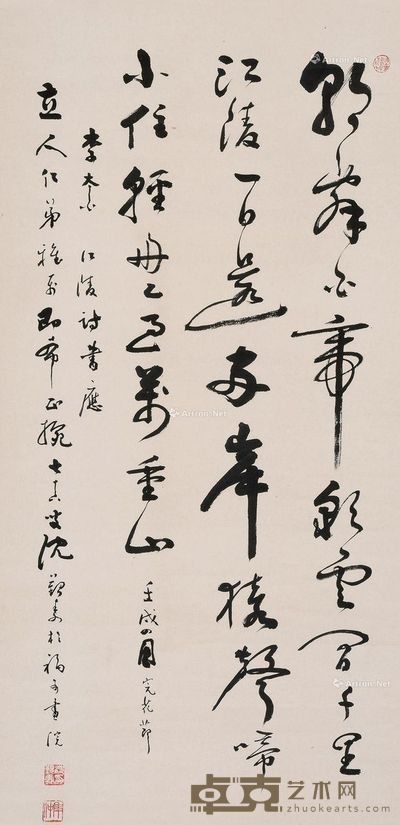 朝辭白帝彩雲間千里
江陵一日還兩岸猿聲啼
不住輕舟已過萬重山 壬戌
李太白 江陵詩書應
立人仁弟雅 即希正腕 七十 叟沈 於 畫院
Artron.Net
卓克艺术网
zhuokearts.com